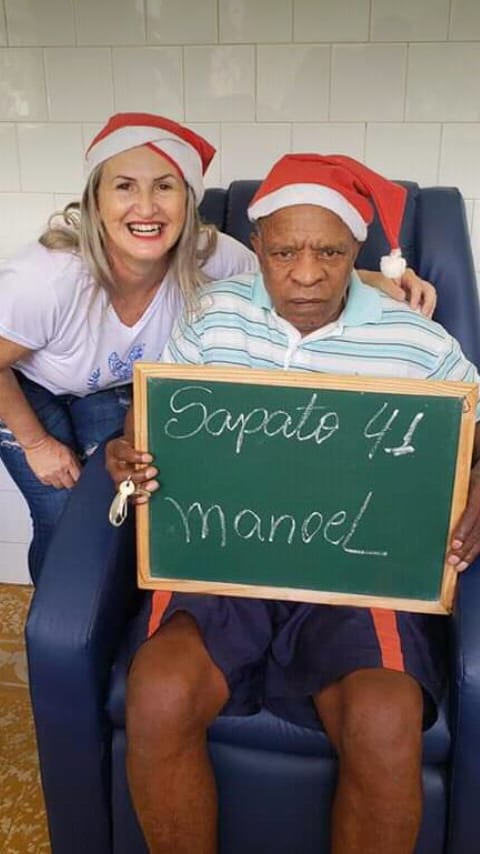 Sapato 41
Manoel